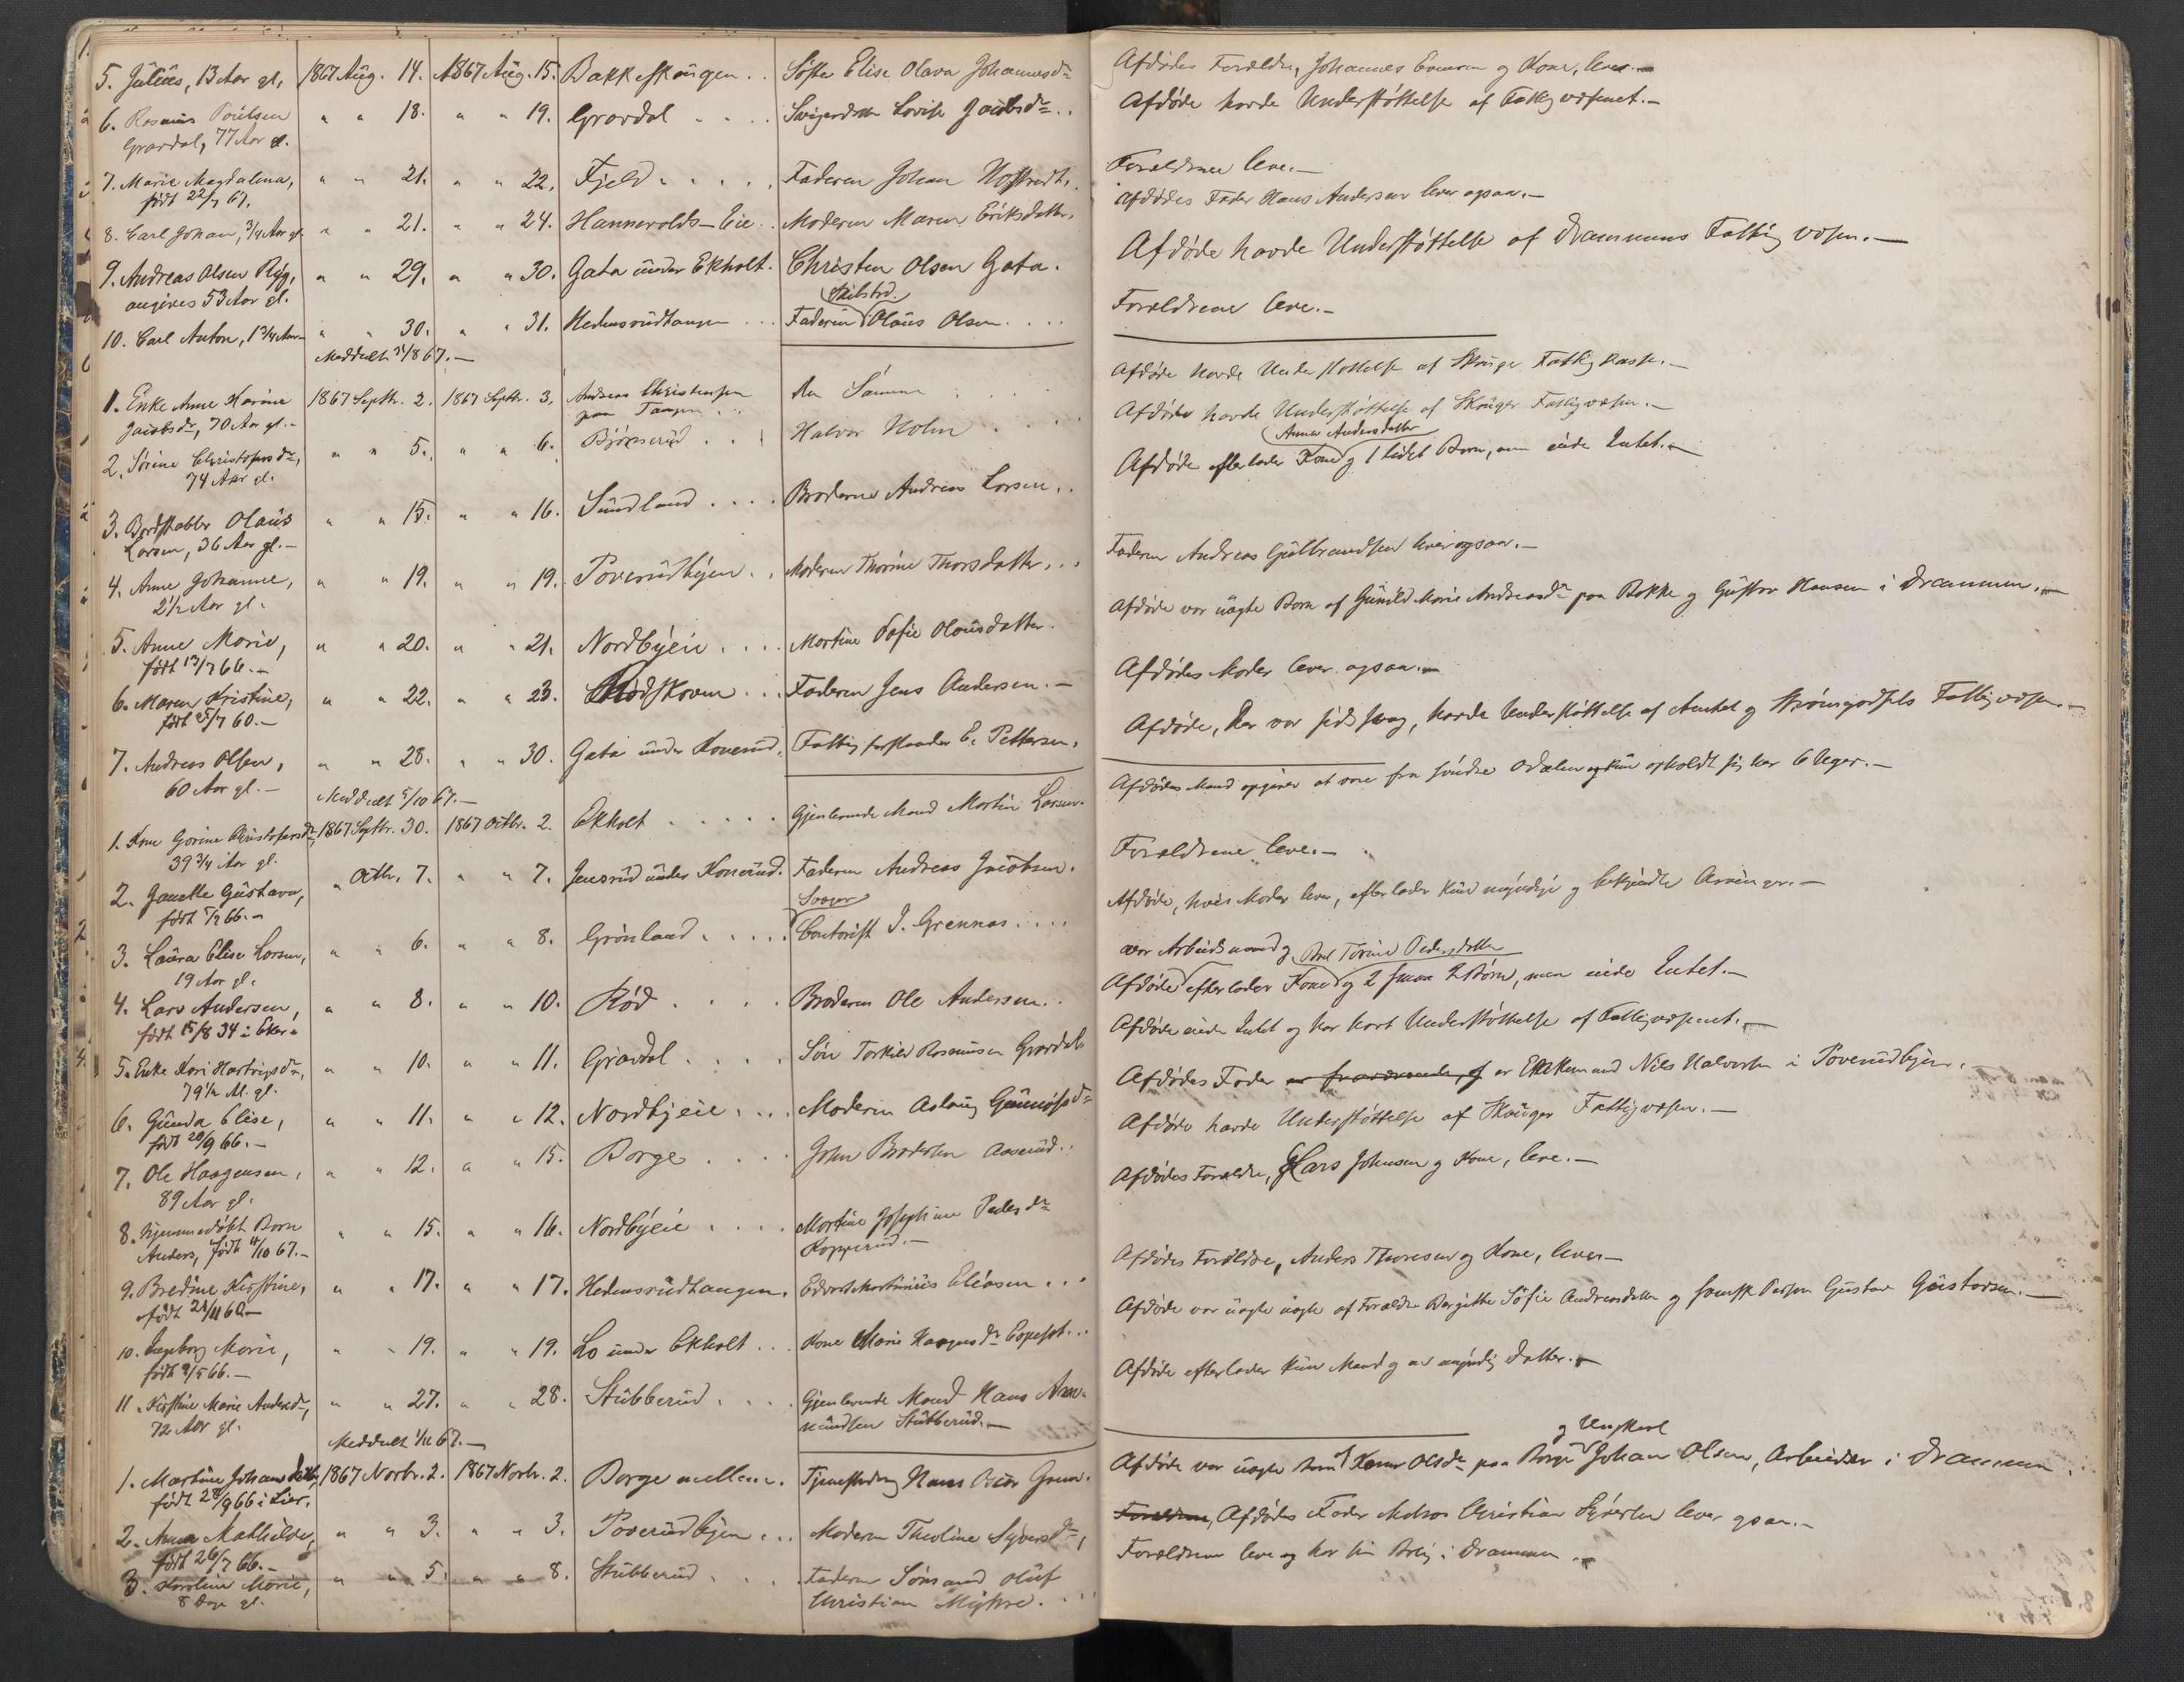 5. Julius, 13 Aar gl, 1867 Aug. 14. 1867 Aug. 15. Bakkeskaugen . . Søster Elise Olava Johannesdr
6. Rasmus Poulsen " " 18. " " 19. Gravdal . . . . Lovise Jacobsdr . .
Gravdal, 77 Aar gl.
7. Marie Magdalena, " " 21. " " 22. Fjeld . . . . . Faderen Johan
født 22/7 67.
8. Carl Johan, 3/4 Aar gl " " 21. " " 24. Hannevolds-Eie . . Moderen Maren Eriksdatter.
9. Andreas Olsen Ryg, " " 29. " " 30. Gata under Ekholt. Christen Olsen Gata.
angives 53 Aar gl.
10. Carl Anton, 1 3/4 Aar " " 30. " " 31. Hedensrudtangen . . . Faderen Olaus Olsen . . . .
Meddelt 31/8 67.-
1. Enke Anne Karine 1867 Septbr. 2. 1867 Septbr. 3. Andreas Christensen den Samme . . .
Jacobsdr, 70 Aar gl.- paa Tangen . . .
2. Sørine Christophersdr, " " 5. " " 6. Bjørnerud . . . Halvor Holm . . . .
74 Aar gl.
3. Bordstabler Olaus " " 15. " " 16. Sundland . . . . Broderen Andreas Larsen . .
Larsen, 36 Aar gl.-
4. Anne Johanne, " " 19. " " 19. Poverudbyen . . Moderen Thorine Thorsdatter . . .
2 1/2 Aar gl.
5. Anne Marie, " " 20. " " 21. Nordbyeie . . . . Martine Sofie Olausdatter.
født 13/7 66.-
6. Maren Kristine, " " 22. " " 23. Rødskoven . . . Faderen Jens Andersen.-
født 25/7 60.-
7. Andreas Olsen, " " 28. " " 30. Gata under Konerud. Fattigforstander E. Pettersen.
60 Aar gl.-
Meddelt 5/10 67.-
1. Kone Gorine Christophersdr, 1867 Septbr. 30. 1867 Octbr. 2. Ekholt . . . . . Gjenlevende Mand Martin Larsen.
39 3/4 Aar gl.
2. Janette Gustava, " Octbr. 7. " " 7. Jensrud under Konerud. Faderen Andreas Jacobsen.
født 5/2 66.-
Svoger
3. Laura Elise Larsen, " " 6. " " 8. Grønland . . . . . Contorist J. Grennes . . . .
19 Aar gl.
4. Lars Andersen, " " 8. " " 10. Rød . . . . . Broderen Ole Andersen . .
født 15/8 34 i Eker.
5. Enke Kari Hartvigsdr, " " 10. " " 11. Gravdal . . . . Søn Torkild Rasmussen Gravdal.
79 1/2 Al. gl.
6. Gunda Elise, " " 11. " " 12. Nordbyeie . . . Moderen Aslaug
født 20/9 66.-
7. Ole Haagensen, " " 12. " " 15. Borge . . . . John Aaserud . .
89 Aar gl.
8. Hjemmedøbt Barn " " 15. " " 16. Nordbyeie . . . . Martine Josephine Pedersdr
Anders, født 11/10 67.- Kopperud.-
9. Bredine Kirstine, " " 17. " " 17. Hedensrudtangen. Edvard Martinius Eliasen . . .
født 21/11 60.-
10. Ingeborg Marie, " " 19. " " 19. Lo under Ekholt . . . Kone Marie Haagensdr
født 9/5 66.-
11. Kirstine Marie Andersdr, " " 27. " " 28. Stubberud . . . . Gjenlevende Mand Hans Am-
72 Aar gl. mundsen Stubberud.-
Meddelt 1/11 67.-
1. Martine Johansdatter, 1867 Novbr. 2. 1867 Novbr. 2. Borge mellem. Tjenestedreng Hans
født 28/9 66 i Lier.
2. Anna Mathilde, " " 3. " " 3. Poverudbyen . . . Moderen Theoline Syversdr,
født 26/7 66.-
3. Karoline Marie, " " 5. " " 8. Stubberud . . . . Faderen Sømand Oluf
8 Dage gl. Christian Myhre . . . .
Afdødes Forældre, Johannes Evensen og Kone, lever.-
Afdøde havde Understøttelse af Fattigvæsenet.-
Forældrene leve.-
Afdødes Fader Hans Andersen lever ogsaa.-
Afdøde havde Understøttelse af Drammens Fattigvæsen.-
Forældrene leve.-
Afdøde havde Understøttelse af Skouger Fattigkasse.-
Afdøde havde Understøttelse af Skouger Fattigvæsen.-
Anne Andersdatter
Afdøde efterlader Kone og 1 lidet Barn, men eiede Intet.-
Faderen Andreas Gulbrandsen lever ogsaa.-
Afdøde var uægte Barn af Gunild Marie Andreasdr paa Bakke og Gustav Hansen i Drammen.-
Afdødes Moder lever ogsaa.-
Afdøde, der var sindssvag, havde Understøttelse af Amtet og Strømsgodsets Fattigvæsen.-
Afdødes Mand opgives at være fra søndre Odalen og kun opholdt sig her 6 Uger.-
Forældrene leve.-
Afdøde, hvis Moder lever, efterlader kun myndige og bekjendte Arvinger.-
var Arbeidsmand og Torine Pedersdatter
Afdøde efterlader Kone og 2 smaa Børn, men eiede Intet.-
Afdøde eiede Intet og har havt Understøttelse af Fattigvæsenet.-
Afdødes Fader er fraværende, og er Enkemand Nils Halvorsen i Poverudbyen.
Afdøde havde Understøttelse af Skouger Fattigvæsen.-
Afdødes Forældre, Lars Johnsen og Kone, leve.-
Afdødes Forældre, Anders Thoresen og Kone, lever.-
Afdøde var uægte af Forældre Bergitte Sofie Andreasdatter og svensk Person Gustav Gustavsen.-
Afdøde efterlader kun Mand og en myndig Datter.-
og Ungkarl
Afdøde var uægte Barn Karen Olsdr paa Borge Johan Olsen, Arbeider i Drammen.
Forældrene, Afdødes Fader Matros Christian Syversen lever ogsaa.-
Forældrene leve og har sin Bolig i Drammen.-